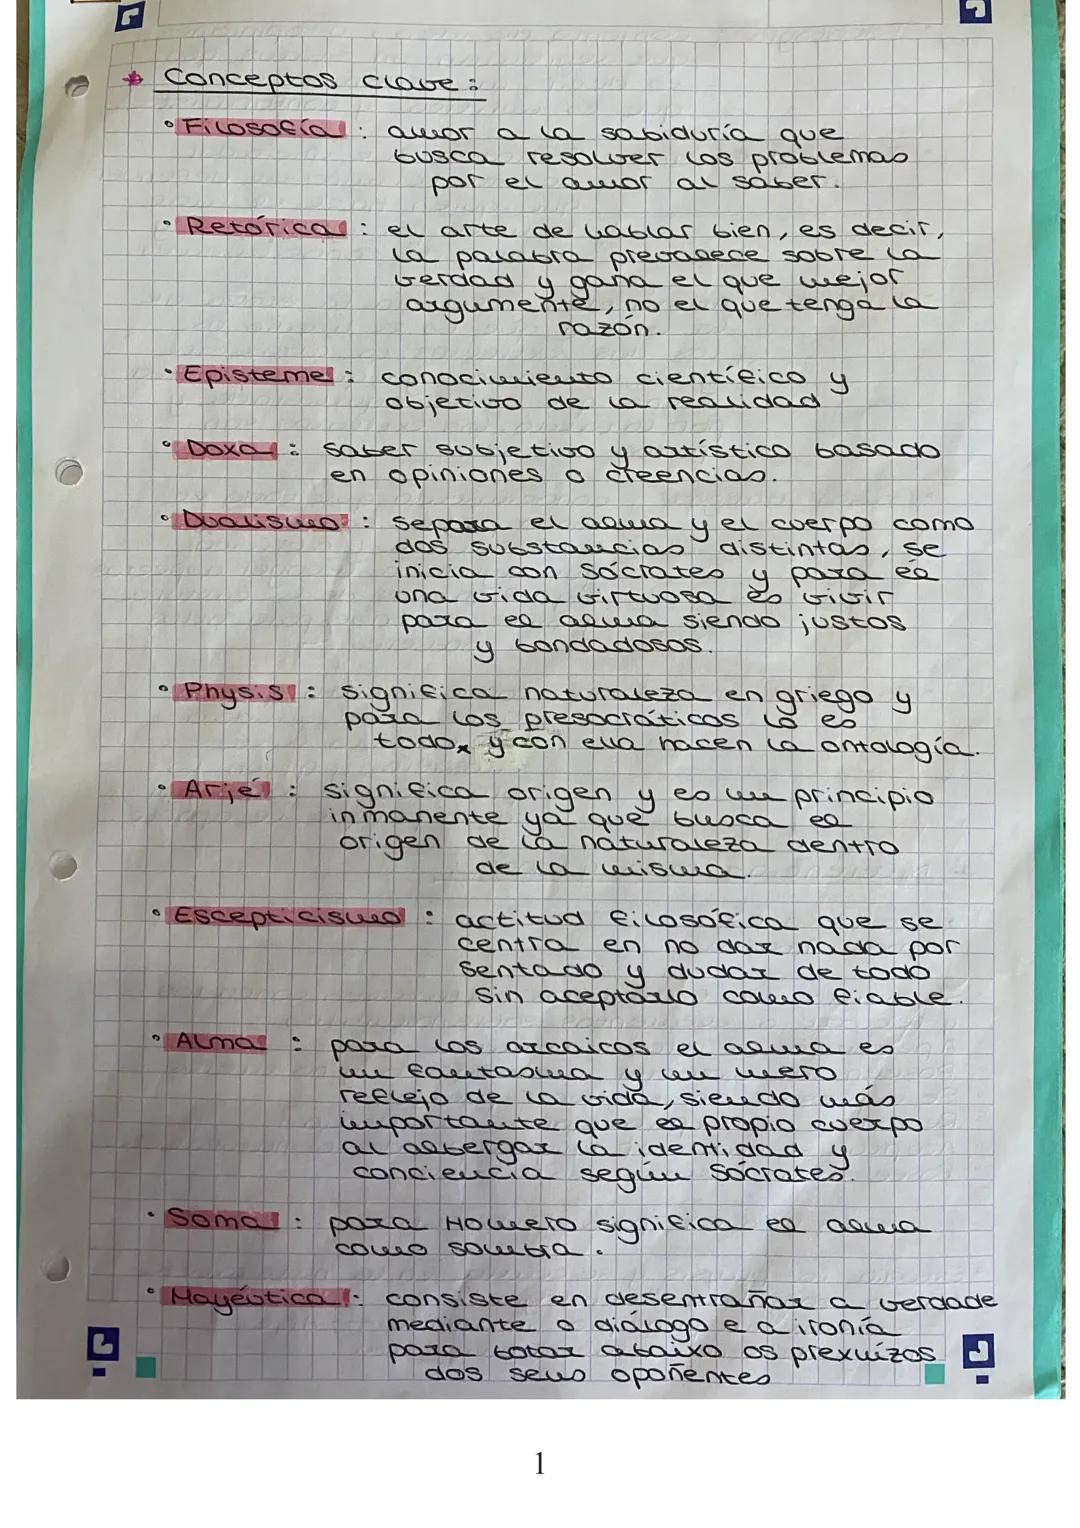 * Conceptos clave:
• Filosofía: amor a la sabiduría que
busca resolver los problemas
por el amor al saber.
• Retórica: el arte de hablar bien, es decir,
la palabra prevalece sobre la
verdad y gana el que mejor
argumente, no el que tenga la
razón.
• Episteme: conocimiento científico y
objetivo de la realidad
• Doxa: saber subjetivo y artístico basado
en opiniones o creencias.
• Dualismo: separa el alma y el cuerpo como
dos substancias distintas, se
inicia con Sócrates y para él
una vida virtuosa es vivir
para el alma siendo justos
y bondadosos.
• Physis: significa naturaleza en griego y
para los presocráticos lo es
todo, y con ella nacen la ontología.
• Arjé: significa origen y es un principio
inmanente ya que busca el
origen de la naturaleza dentro
de la misma.
• Escepticismo: actitud filosófica que se
centra en no dar nada por
sentado y dudar de todo
sin aceptarlo como fiable.
• Alma: para los arcaicos el alma es
un fantasma y un mero
reflejo de la vida, siendo más
importante que el propio cuerpo
al albergar la identidad y
conciencia según Sócrates.
• Soma: para Homero significa el alma
como sombra.
• Mayéutica: consiste en desentrañar a verdade
mediante o diálogo e a ironía
para botar abaixo os prexuízos
dos seus opoñentes
1